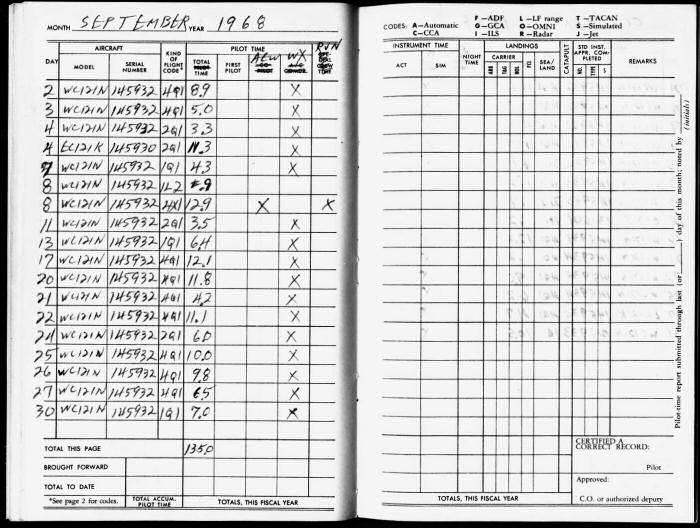 MONTH SEPTEMBER YEAR 1968
AIRCRAFT KIND OF FLIGHT CODE* TOTAL TIME PILOT TIME RVN
DAY MODEL SERIAL NUMBER FIRST PILOT ACW WX
2 WC121N 145932 4Q1 8.9 X
3 WC121N 145932 4Q1 5.0 X
4 WC121N 145932 2Q1 3.3 X
4 EC121K 145930 2Q1 .3 X
WC121N 145932 1Q1 4.3 X
8 WC121N 145932 1L2 .9
8 WC121N 145932 4X1 12.9 X X
11 WC121N 145932 2Q1 3.5 X
13 WC121N 145932 1Q1 6.4 X
17 WC121N 145932 4Q1 12.1 X
20 WC121N 145932 4Q1 11.8 X
21 WC121N 145932 4Q1 4.2 X
22 WC121N 145932 4Q1 11.1 X
24 WC121N 145932 2Q1 6.0 X
25 WC121N 145932 4Q1 10.0 X
26 WC121N 145932 4Q1 9.8 X
27 WC121N 145932 4Q1 6.5 X
30 WC121N 145932 1Q1 7.0 X
TOTAL THIS PAGE 135.0
BROUGHT FORWARD
TOTAL TO DATE
*See page 2 for codes. TOTAL ACCUM. PILOT TIME TOTALS, THIS FISCAL YEAR
F —ADF L —LF range T —TACAN
CODES: A—Automatic G—GCA O—OMNI S—Simulated
C—CCA I —ILS R—Radar J —Jet
INSTRUMENT TIME NIGHT TIME LANDINGS CATAPULT STD INST. APPR. COMPLETED REMARKS
ACT SIM CARRIER SEA/LAND
ARR T&G BOL FCL NO. TYPE S
Pilot-time report submitted through last (or ) day of this month; noted by
(initials)
CERTIFIED A CORRECT RECORD:
Pilot
Approved:
TOTALS, THIS FISCAL YEAR C.O. or authorized deputy